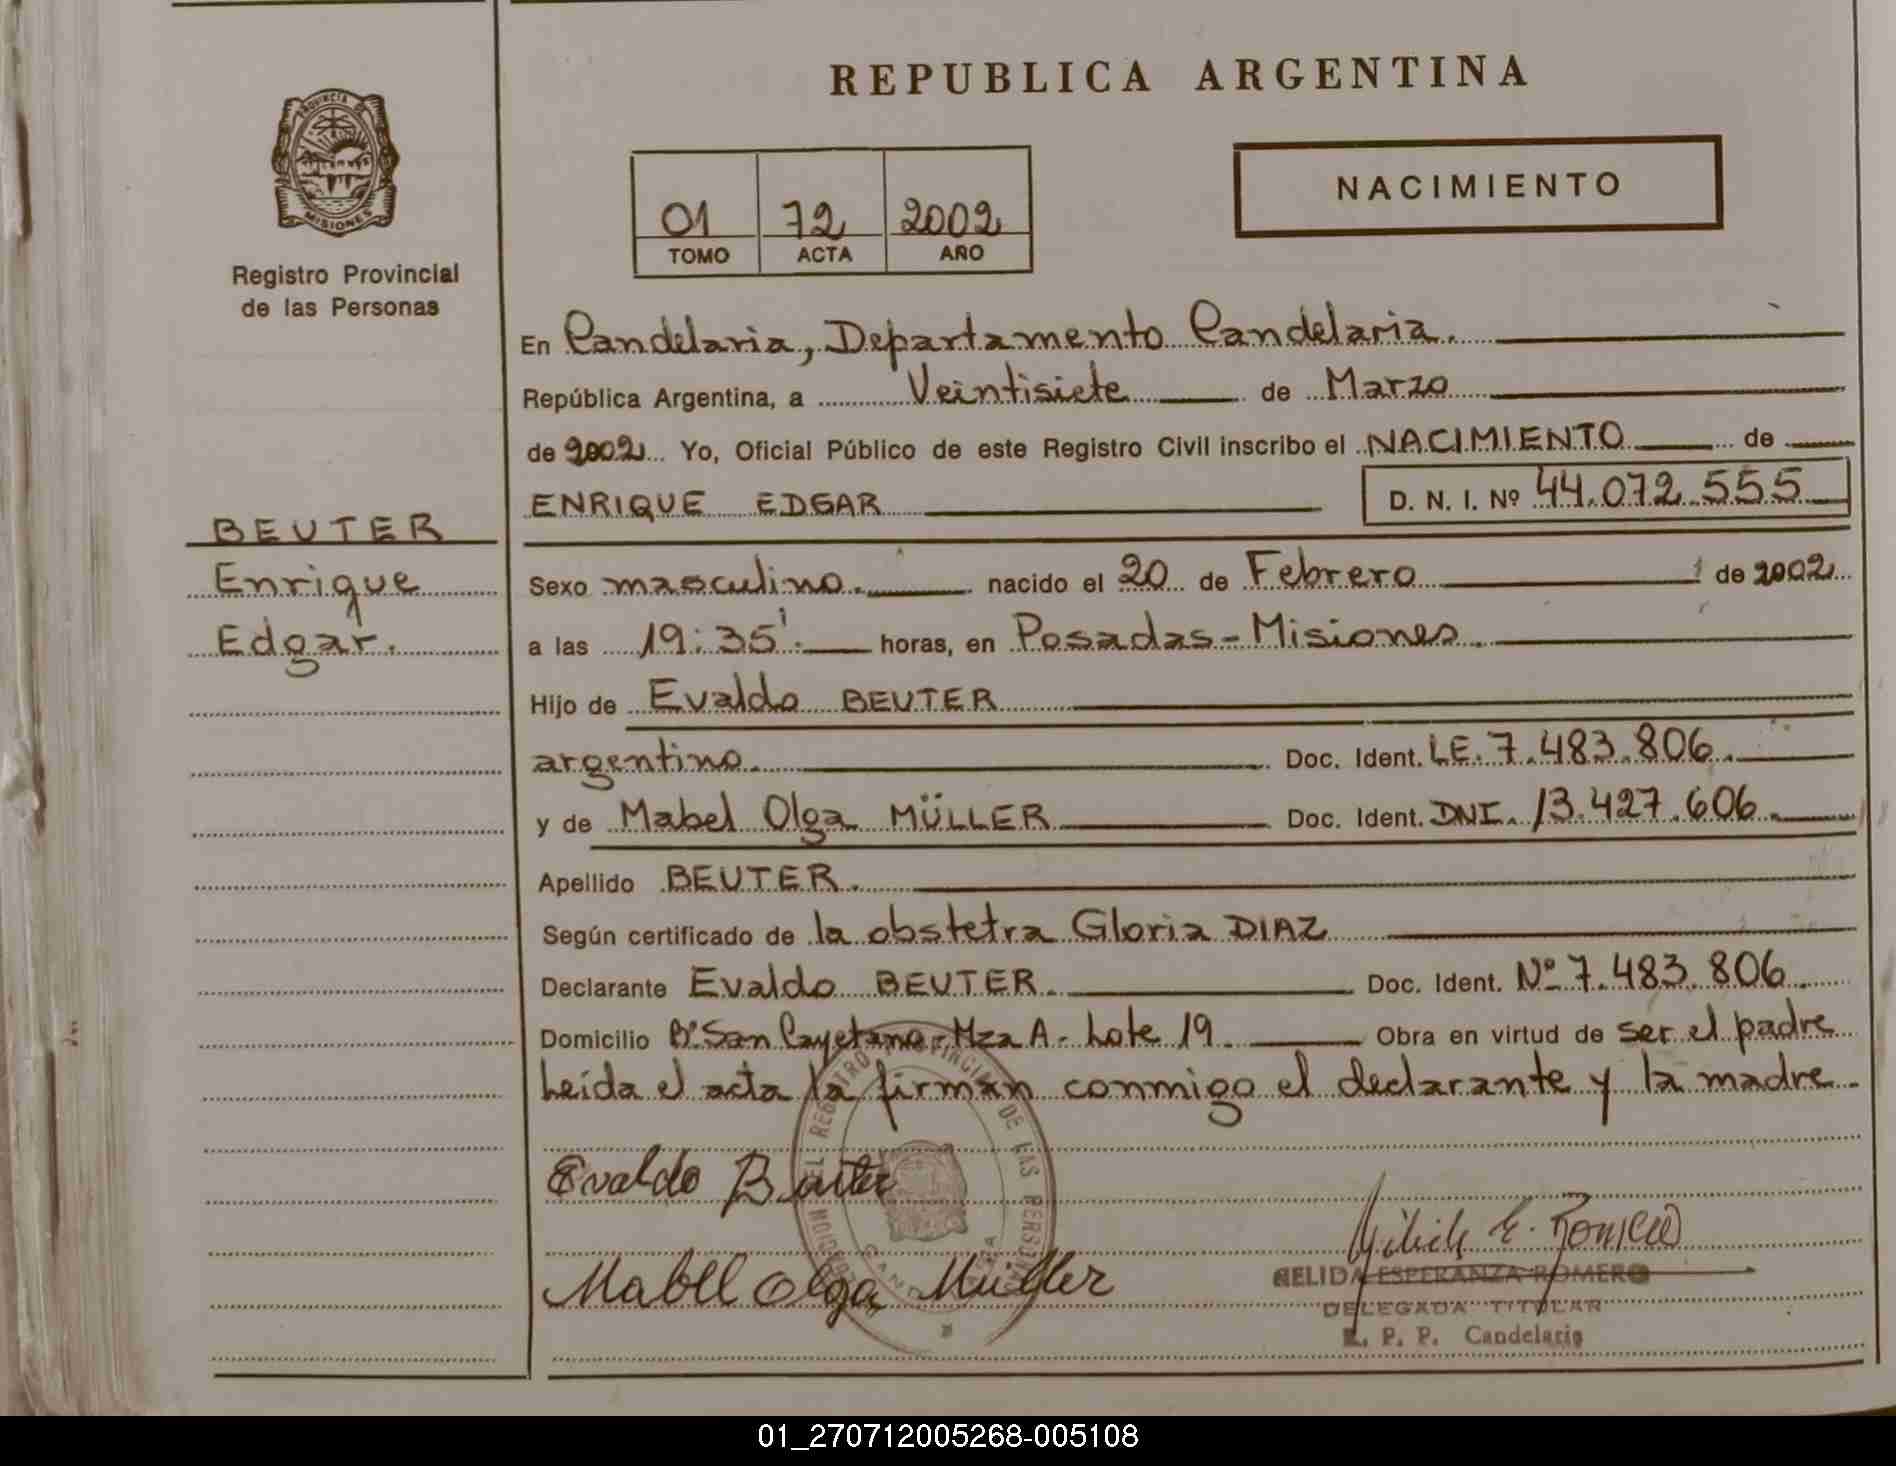 REPUBLICA ARGENTINA
PROVINCIA DE
MISIONES
Registro Provincial
de las Personas
01 72 2002
TOMO ACTA AÑO
NACIMIENTO
En Candelaria, Departamento Candelaria.
República Argentina, a Veintisiete de Marzo
de 2002 Yo, Oficial Público de este Registro Civil inscribo el NACIMIENTO de
ENRIQUE EDGAR D. N. I. Nº 44.072.555
BEUTER
Enrique
Edgar.
Sexo masculino. nacido el 20 de Febrero de 2002
a las 19:35'. horas, en Posadas - Misiones.
Hijo de Evaldo BEUTER
argentino. Doc. Ident. LE. 7.483.806.
y de Mabel Olga MÜLLER Doc. Ident. DNI. 13.427.606.
Apellido BEUTER.
Según certificado de la obstetra Gloria DIAZ
Declarante Evaldo BEUTER. Doc. Ident. Nº 7.483.806.
Domicilio Bº San Cayetano - Mza A - Lote 19. Obra en virtud de ser el padre
Leída el acta la firman conmigo el declarante y la madre.
DEL REGISTRO PROVINCIAL DE LAS PERSONAS
Evaldo Beuter
Mabel Olga Müller
E. Romero
NELIDA ESPERANZA ROMERO
DELEGADA TITULAR
R. P. P. Candelaria
01_270712005268-005108